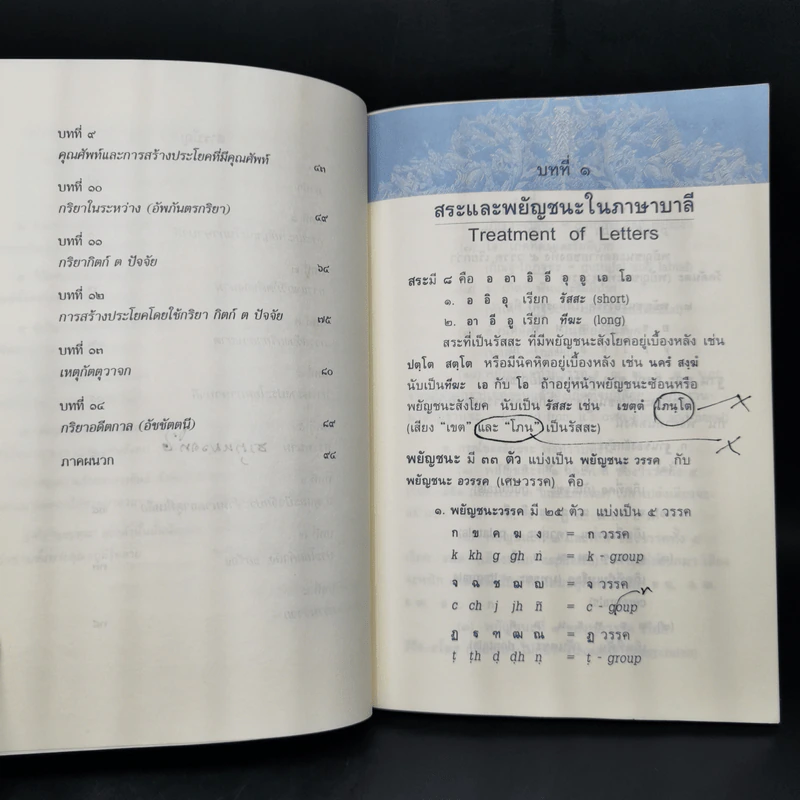 บทที่ ๙
คุณศัพท์และการสร้างประโยคที่มีคุณศัพท์ ๔๓
บทที่ ๑๐
กริยาในระหว่าง (อัพภันตรกริยา) ๔๙
บทที่ ๑๑
กริยากิตก์ ต ปัจจัย ๖๔
บทที่ ๑๒
การสร้างประโยคโดยใช้กริยา กิตก์ ต ปัจจัย ๗๕
บทที่ ๑๓
เหตุกัตตุวาจก ๘๐
บทที่ ๑๔
กริยาอดีตกาล (อัชชัตตนี) ๘๙
ภาคผนวก ๙๔
บทที่ ๑
สระและพยัญชนะในภาษาบาลี
Treatment of Letters
สระมี ๘ คือ อ อา อิ อี อุ อู เอ โอ
๑. อ อิ อุ เรียก รัสสะ (short)
๒. อา อี อู เรียก ทีฆะ (long)
สระที่เป็นรัสสะ ที่มีพยัญชนะสังโยคอยู่เบื้องหลัง เช่น
ปตฺโต สตฺโต หรือมีนิคหิตอยู่เบื้องหลัง เช่น นครํ สงฺฆํ
นับเป็นทีฆะ เอ กับ โอ ถ้าอยู่หน้าพยัญชนะซ้อนหรือ
พยัญชนะสังโยค นับเป็น รัสสะ เช่น เขตฺตํ โภนฺโต
(เสียง "เขต" และ "โภน" เป็นรัสสะ)
พยัญชนะ มี ๓๓ ตัว แบ่งเป็น พยัญชนะ วรรค กับ
พยัญชนะ อวรรค (เศษวรรค) คือ
๑. พยัญชนะวรรค มี ๒๕ ตัว แบ่งเป็น ๕ วรรค
ก ข ค ฆ ง = ก วรรค
k kh g gh ṅ = k - group
จ ฉ ช ฌ ญ = จ วรรค
c ch j jh ñ = c - goup
ฏ ฐ ฑ ฒ ณ = ฏ วรรค
ṭ ṭh ḍ ḍh ṇ = ṭ - group